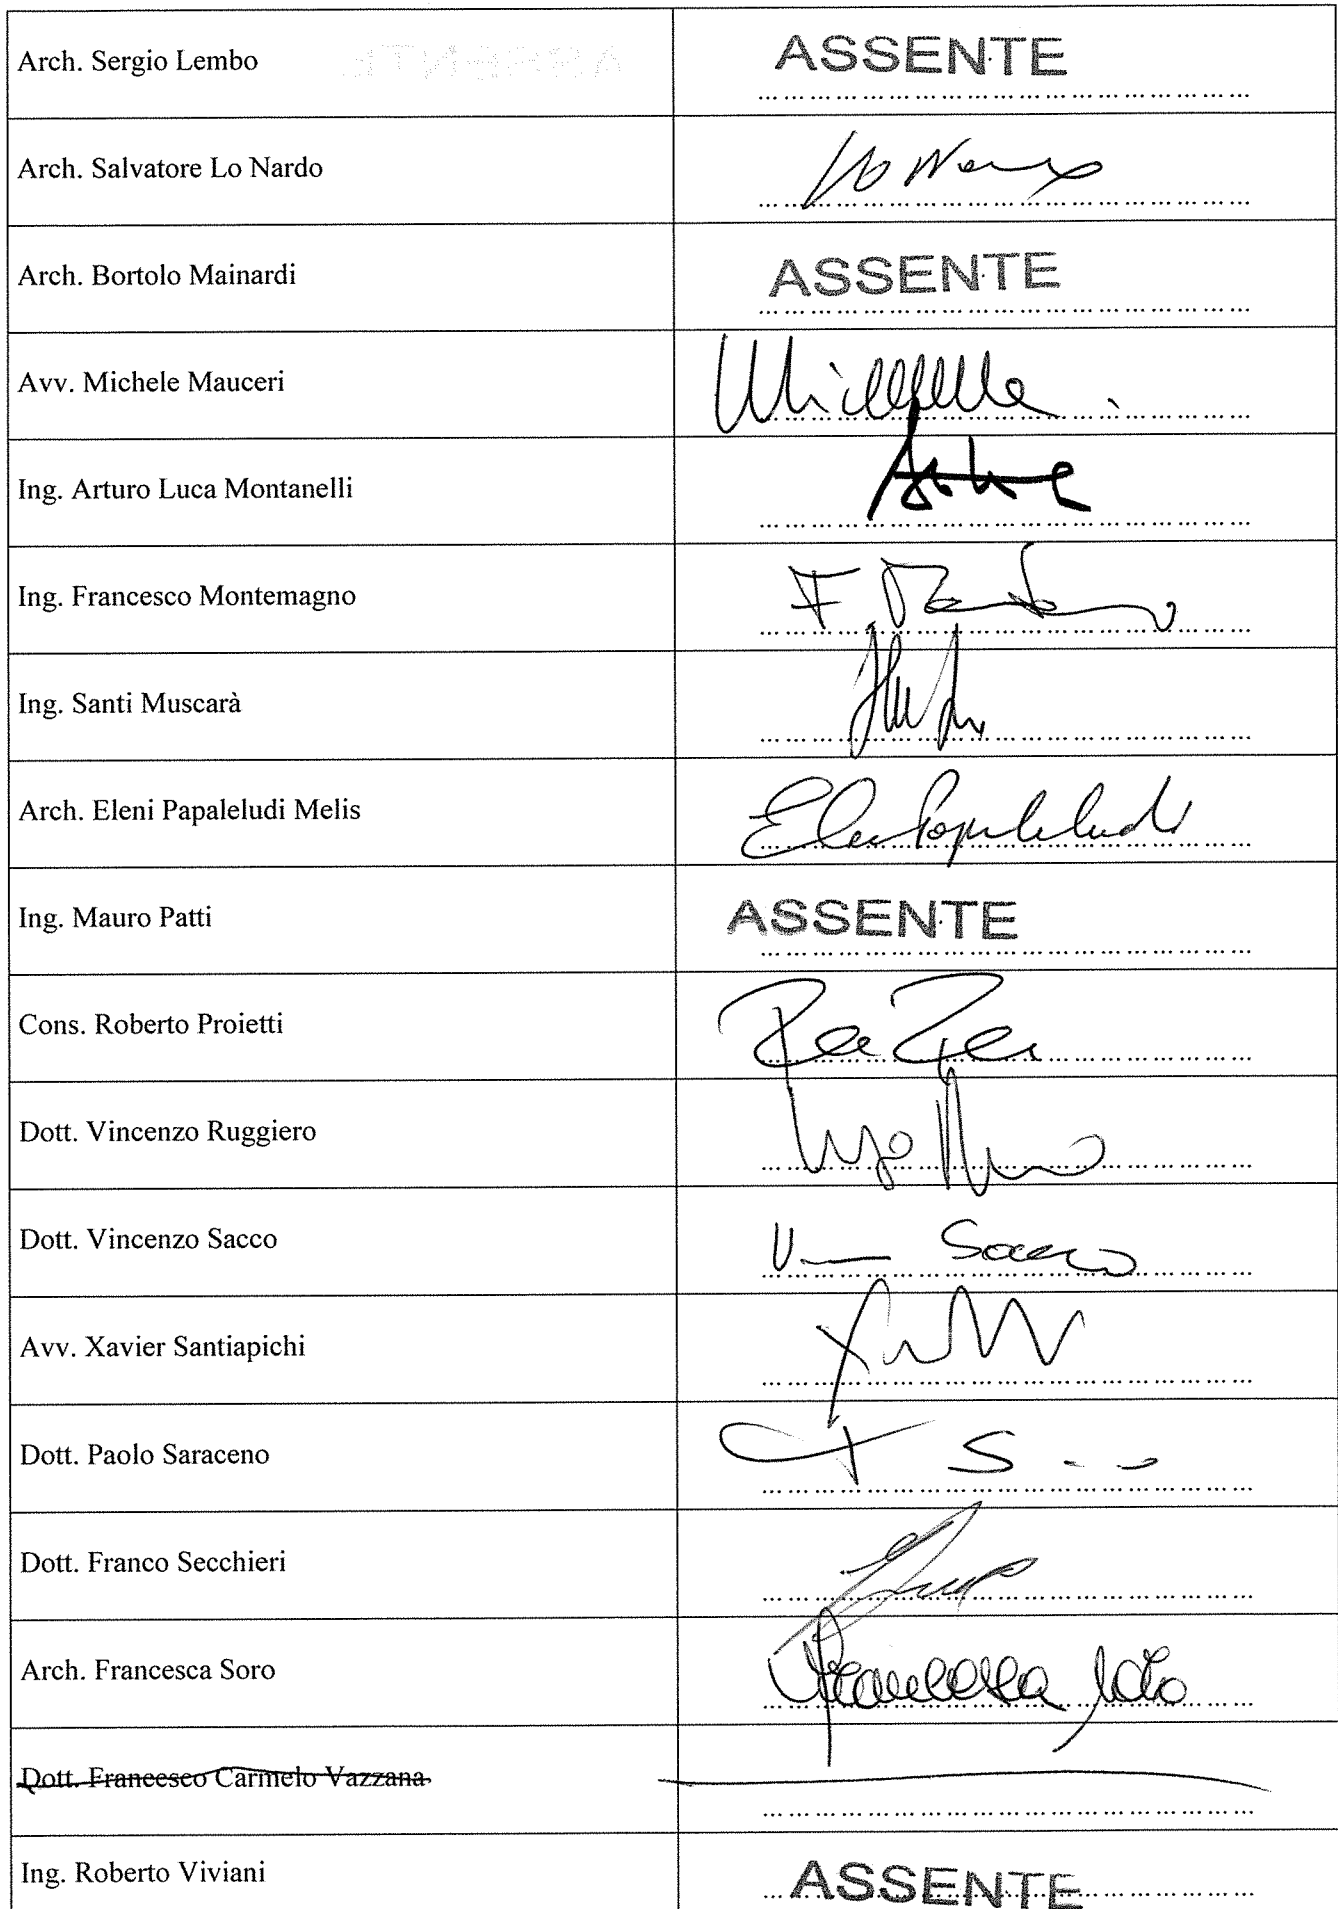 Arch. Sergio Lembo ASSENTE
Arch. Salvatore Lo Nardo
Arch. Bortolo Mainardi ASSENTE
Avv. Michele Mauceri
Ing. Arturo Luca Montanelli
Ing. Francesco Montemagno
Ing. Santi Muscarà
Arch. Eleni Papaleludi Melis Elen Papaleludi
Ing. Mauro Patti ASSENTE
Cons. Roberto Proietti
Dott. Vincenzo Ruggiero
Dott. Vincenzo Sacco Sacco
Avv. Xavier Santiapichi
Dott. Paolo Saraceno
Dott. Franco Secchieri
Arch. Francesca Soro Francesca Soro
Dott. Francesco Carmelo Vazzana
Ing. Roberto Viviani ASSENTE